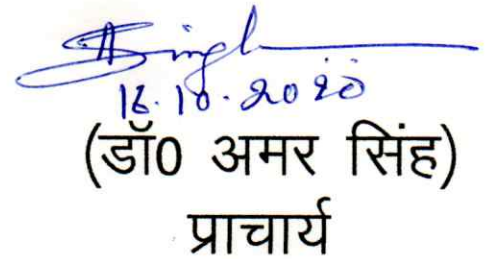 ASingh
16.10.2020
(डॉ0 अमर सिंह)
प्राचार्य